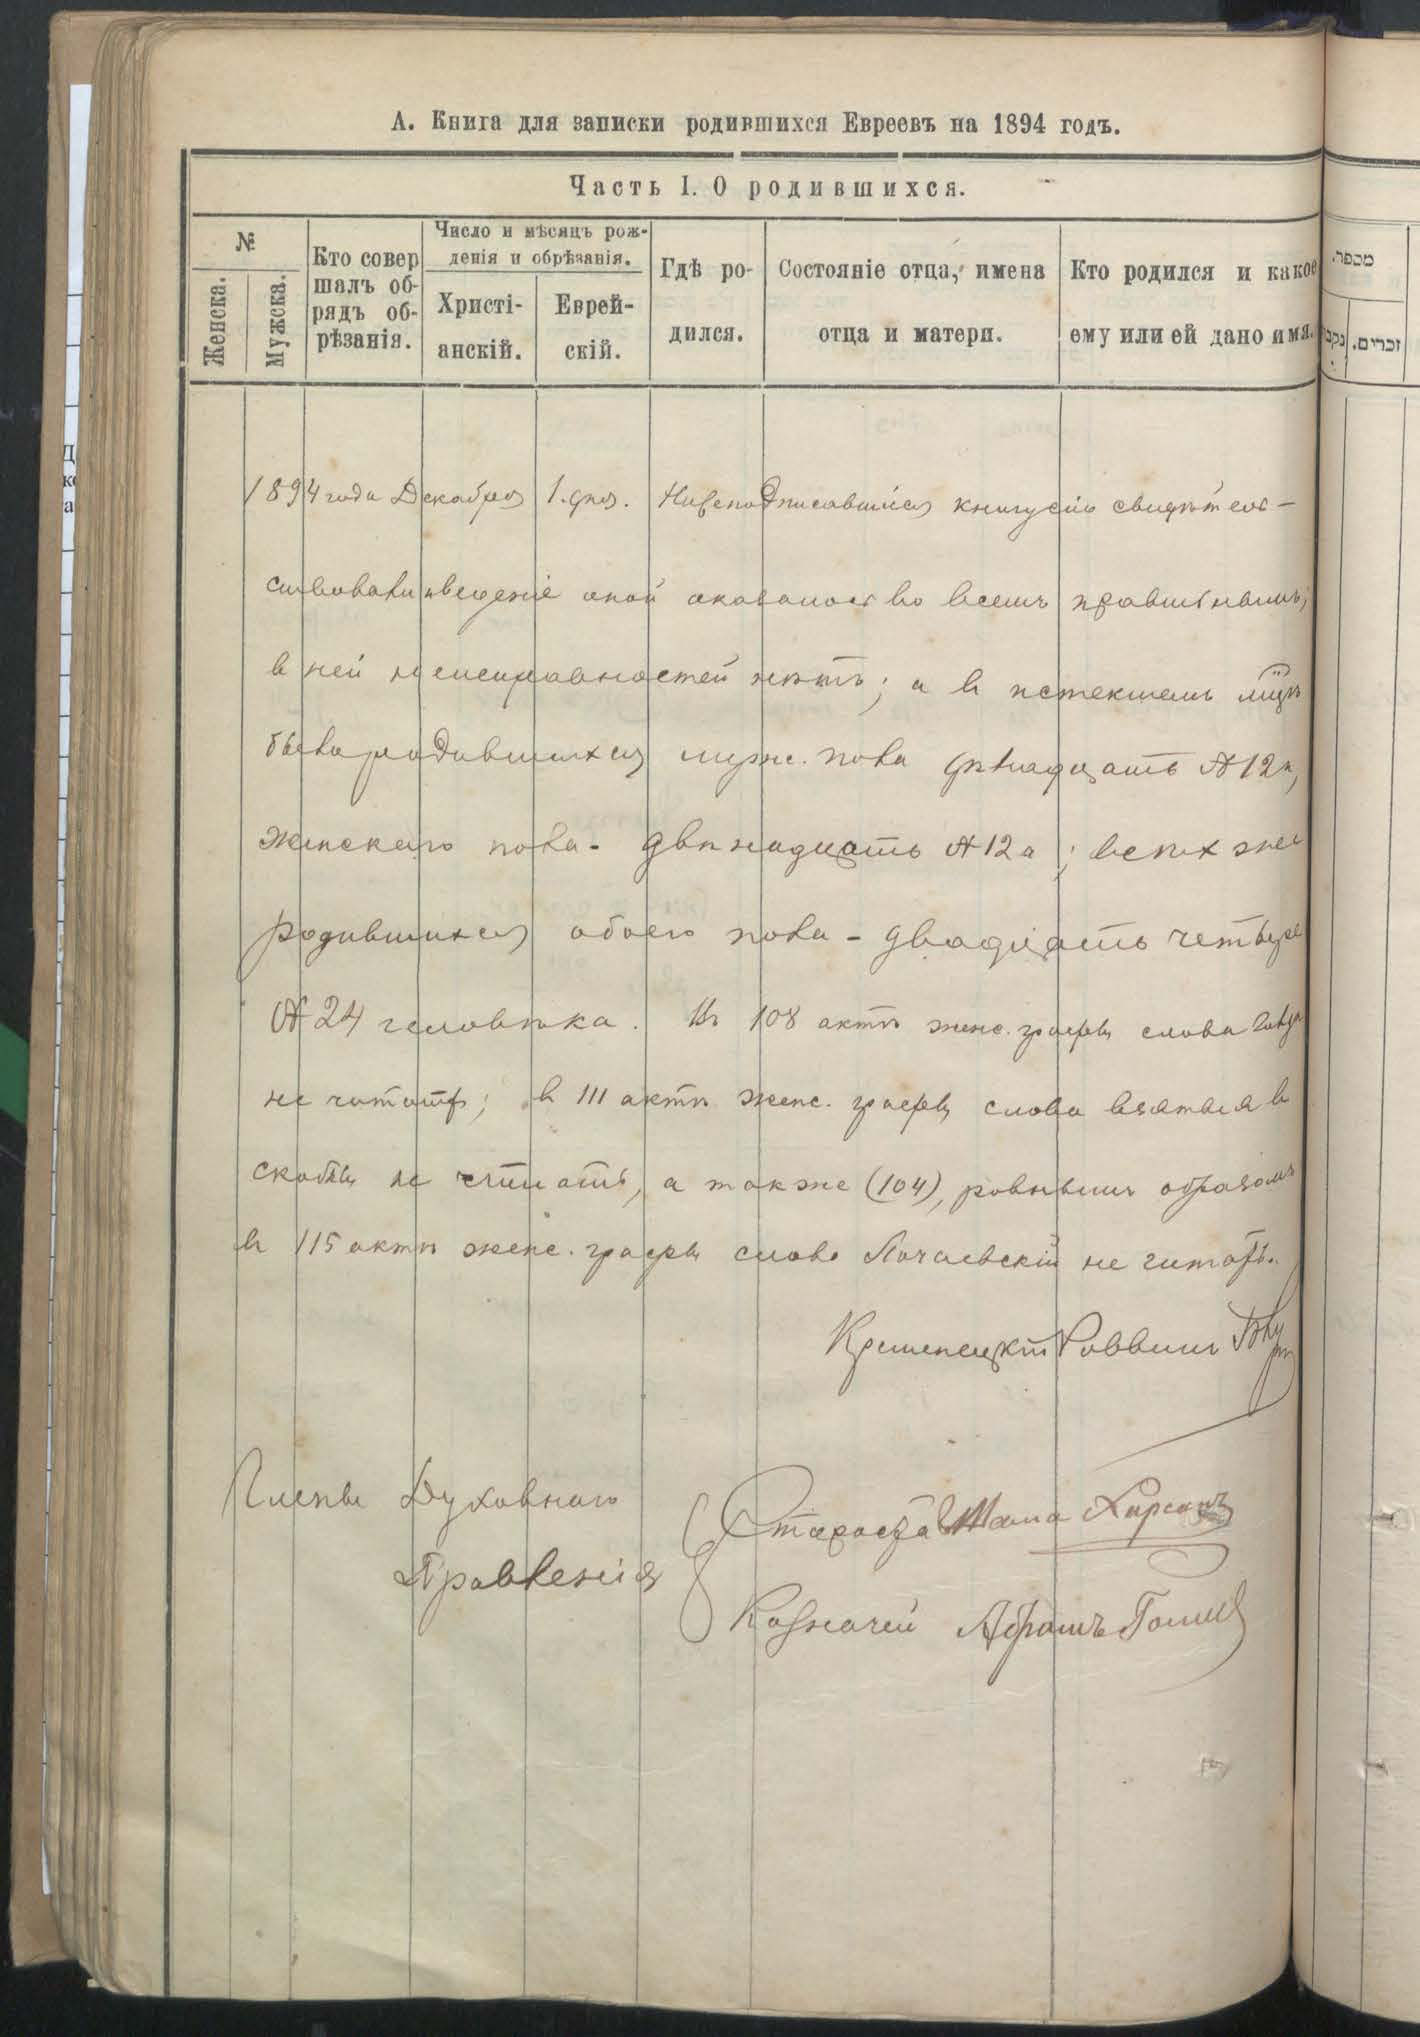 А. Книга для записки родившихся Евреевъ на 1894 годъ.
Часть I. О родившихся.
№
Женска.
Мужска.
Кто совер
шалъ об-
рядъ об-
рѣзанія.
Число и мѣсяцъ рож-
денія и обрѣзанія.
Христі-
анскій.
Еврей-
скій.
Гдѣ ро-
дился.
Состояніе отца, имена
отца и матери.
Кто родился и какое
ему или ей дано имя.
מספר.
זכרים.
נקב
1894 года Декабря 1. дня. Нижеподписавшіися книгу сію свидѣтель-
ствовали и веденіе оной оказалось во всемъ правильнымъ,
в ней неисправностей нѣтъ; а в истекшемъ мцѣ
было родившихся муж. пола двѣнадцать № 12а,
женскаго пола - двѣнадцать № 12а; всѣхъ же
родившихся обоего пола - двадцать четыре
№ 24 человѣка. Въ 108 актѣ женс. графы слова
не читать; в 111 актѣ женс. графы слова взятыя в
скобки не читать, а также (104), равнымъ образомъ
в 115 актѣ женс. графы слово Почаевскій не читать.
Кременецкій Раввинъ
Члены Духовнаго
Правленія
Староста
Казначей Абрамъ